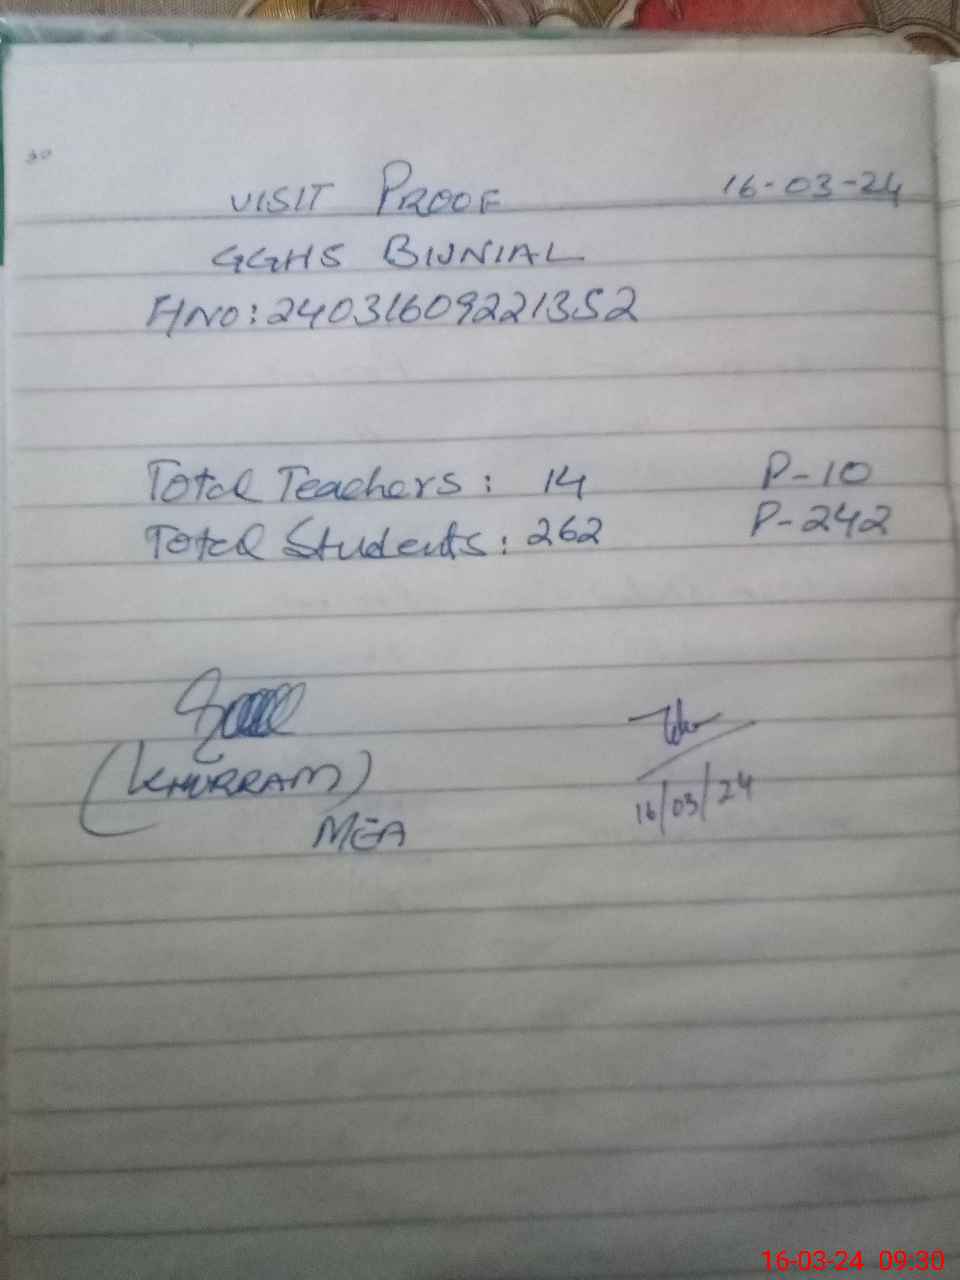 30
VISIT PROOF 16-03-24
GGHS BIJNIAL
HNO:24031609221352
Total Teachers: 14 P-10
Total Students: 262 P-242
(KHURRAM)
MEA
16/03/24
16-03-24 09:30